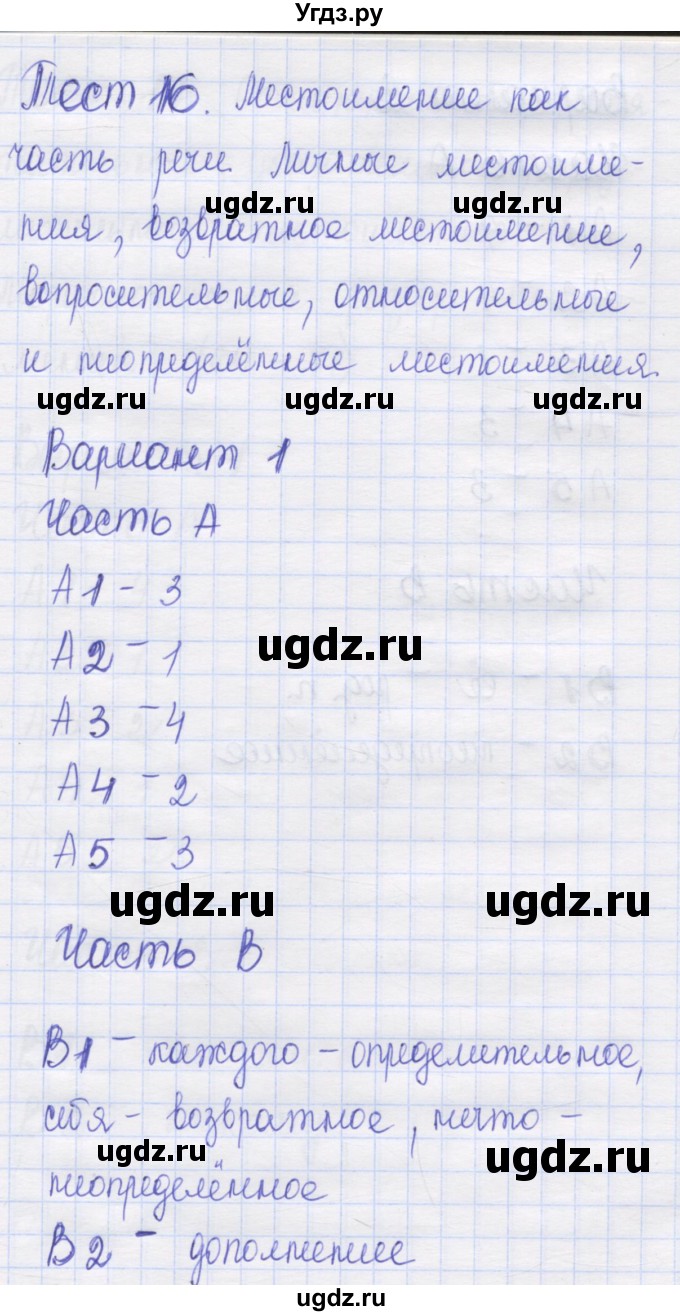 Угдз.ру
Тест 16. Местоимение как
часть речи. Личные местоиме-
ugdz.ru ugdz.ru
ния, возвратное местоимение,
вопросительные, относительные
и неопределённые местоимения.
ugdz.ru ugdz.ru ugdz.ru
Вариант 1
Часть А
А1 - 3
ugdz.ru
А2 - 1
А3 - 4
А4 - 2
А5 - 3
ugdz.ru ugdz.ru
Часть В
В1 - каждого - определительное,
себя - возвратное, нечто -
ugdz.ru ugdz.ru
неопределённое
В2 - дополнение
ugdz.ru